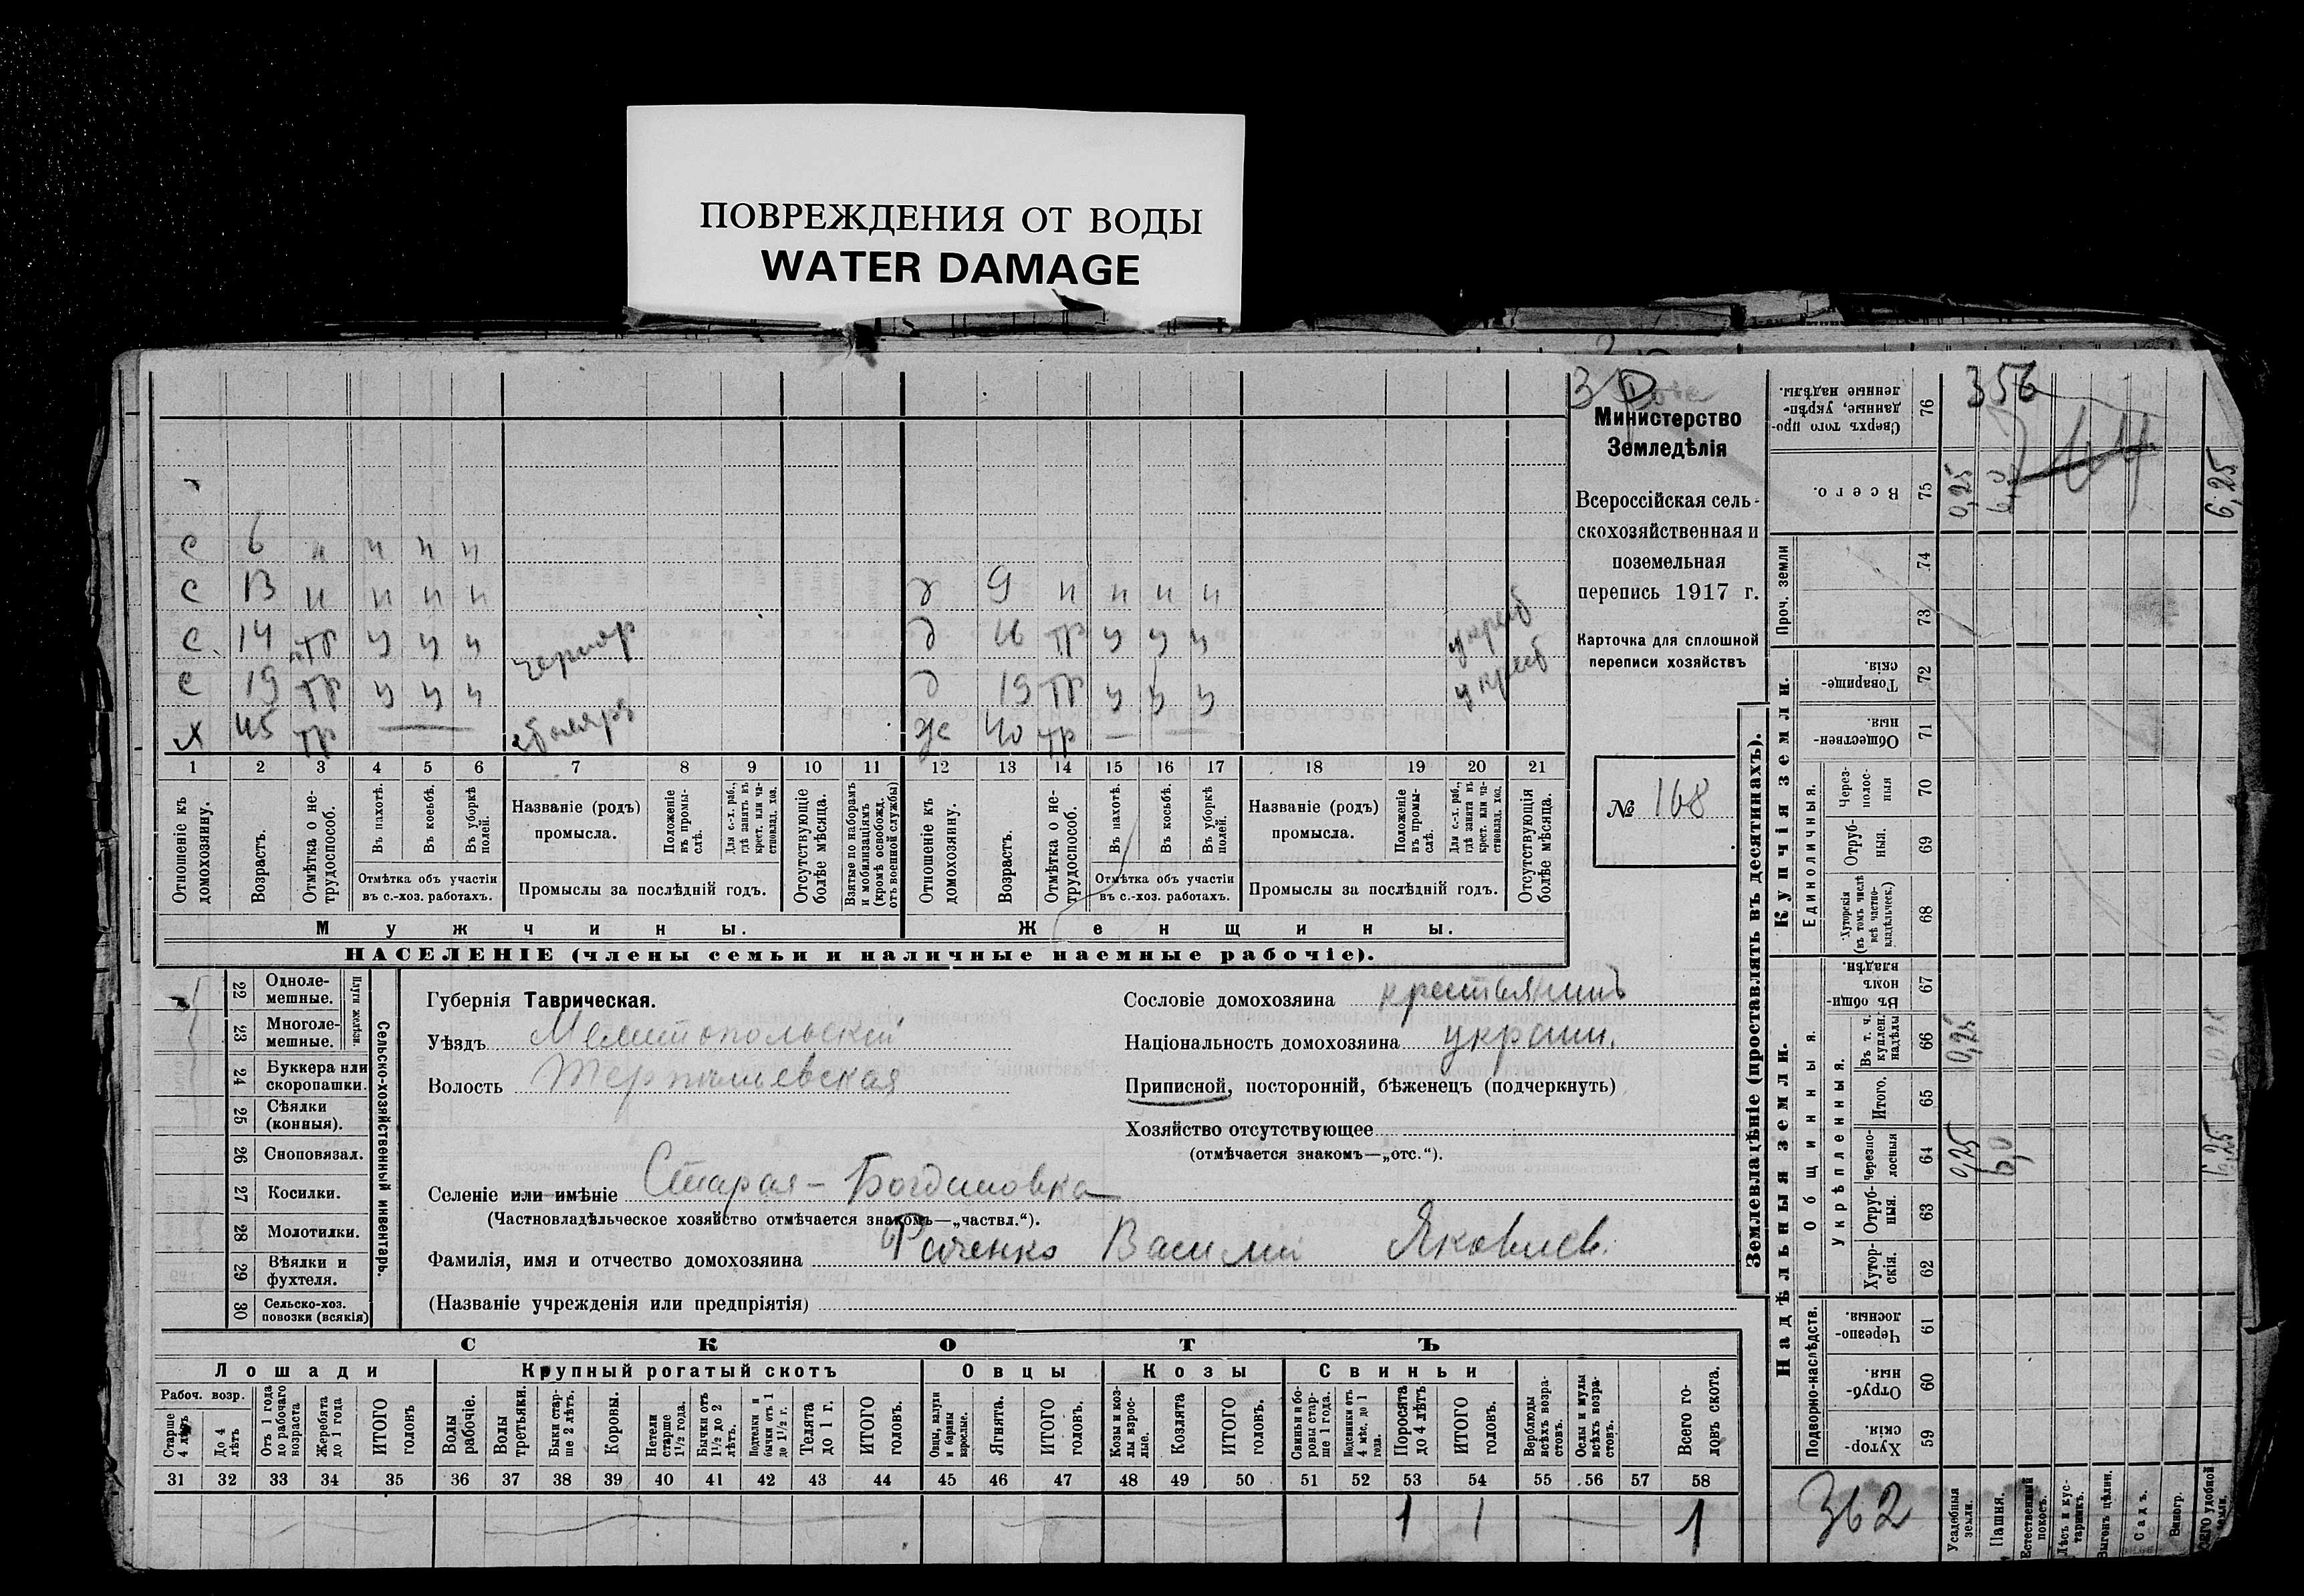 ПОВРЕЖДЕНИЯ ОТ ВОДЫ
WATER DAMAGE
Министерство
Земледѣлія
Всероссійская сель-
скохозяйственная и
поземельная
перепись 1917 г.
Карточка для сплошной
переписи хозяйствъ
№ 168
с 6 н н н н
с 13 н н н н
д 9 н н н н
с 14 тр у у у
д 16 тр у у у
с 19 тр у у у
д 19 тр у у у
х 45 тр —
ж 40 тр — —
1 2 3 4 5 6 7 8 9 10 11 12 13 14 15 16 17 18 19 20 21
Отношеніе къ домохозяину.
Возрастъ.
Отмѣтка о не-трудоспособ.
Въ пахотѣ.
Въ косьбѣ.
Въ уборкѣ полей.
Отмѣтка объ участіи
въ с.-хоз. работахъ.
Названіе (родъ)
промысла.
Положеніе въ промы-слѣ.
Для с.-х. раб., гдѣ занятъ въ крест. или ча-стновлад. хоз.
Промыслы за послѣдній годъ.
Отсутствующіе болѣе мѣсяца.
Взятые по наборамъ и мобилизаціямъ (кромѣ освобожд. отъ военной службы)
Отношеніе къ домохозяину.
Возрастъ.
Отмѣтка о не-трудоспособ.
Въ пахотѣ.
Въ косьбѣ.
Въ уборкѣ полей.
Отмѣтка объ участіи
въ с.-хоз. работахъ.
Названіе (родъ)
промысла.
Положеніе въ промы-слѣ.
Для с.-х. раб., гдѣ занята въ крест. или ча-стновлад. хоз.
Промыслы за послѣдній годъ.
Отсутствующія болѣе мѣсяца.
Мужчины.
Женщины.
НАСЕЛЕНІЕ (члены семьи и наличные наемные рабочіе).
22 Одноле-мешные.
23 Многоле-мешные.
Плуги желѣзн.
24 Буккера или скоропашки.
25 Сѣялки (конныя).
26 Сноповязал.
27 Косилки.
28 Молотилки.
29 Вѣялки и фухтеля.
30 Сельско-хоз. повозки (всякія)
Сельско-хозяйственный инвентарь.
Губернія Таврическая.
Уѣздъ Мелитопольскій
Волость Терпеньевская
Сословіе домохозяина крестьянинъ
Національность домохозяина украин.
Приписной, посторонній, бѣженецъ (подчеркнуть)
Хозяйство отсутствующее
(отмѣчается знакомъ—„отс.“).
Селеніе или имѣніе Старая-Богдановка
(Частновладѣльческое хозяйство отмѣчается знакомъ—„частвл.“).
Фамилія, имя и отчество домохозяина Василій Яковлев.
(Названіе учрежденія или предпріятія)
СКОТЪ
Лошади
Крупный рогатый скотъ
Овцы
Козы
Свиньи
Рабоч. возр.
Старше 4 лѣтъ
До 4 лѣтъ
Отъ 1 года до рабочаго возраста
Жеребята до 1 года
ИТОГО головъ
Волы рабочіе.
Волы третьяки.
Быки стар-ше 2 лѣтъ.
Коровы.
Нетели старше 1½ года.
Бычки отъ 1½ до 2 лѣтъ.
Подтелки и бычки отъ 1 до 1½ г.
Телята до 1 г.
ИТОГО головъ.
Овцы, валухи и бараны взрослые.
Ягнята.
ИТОГО головъ.
Козы и коз-лы взрос-лые.
Козлята
ИТОГО головъ.
Свиньи и бо-ровы стар-ше 1 года.
Подсвинки отъ 4 мѣс. до 1 года.
Поросята до 4 лѣтъ
ИТОГО головъ.
Верблюды всѣхъ возра-стовъ.
Ослы и мулы всѣхъ возра-стовъ.
Всего го-ловъ скота.
31 32 33 34 35 36 37 38 39 40 41 42 43 44 45 46 47 48 49 50 51 52 53 54 55 56 57 58
1 1 1
Землевладѣніе (проставлять въ десятинахъ).
Купчія земли.
Надѣльныя земли.
Сверхъ того про-данные, укрѣп-ленные надѣлы. 76
356
Всего. 75 0,25 6,0 6,25
Проч. земли 74
73
Товарище-скія. 72
Обществен-ныя. 71
Единоличныя.
Через-полос-ныя 70
Отруб-ныя. 69
Хуторскія (въ томъ числѣ всѣ частно-владѣльческ.) 68
Общинныя.
Въ общин-номъ владѣн. 67
Укрѣпленныя.
Въ т. ч. куплен. надѣлы 66 0,25
Итого. 65
Черезпо-лосныя 64 0,25 6,0 6,25
Отруб-ныя. 63
Хутор-скія. 62
Подворно-наслѣдств.
Черезпо-лосныя. 61
Отруб-ныя. 60
Хутор-скія 59
362
Усадебныя земли.
Пашня.
Естественный покосъ.
Лѣсъ и кус-тарникъ.
Выгонъ цѣлин.
Садъ.
Виногр.
Всего удобной земли.